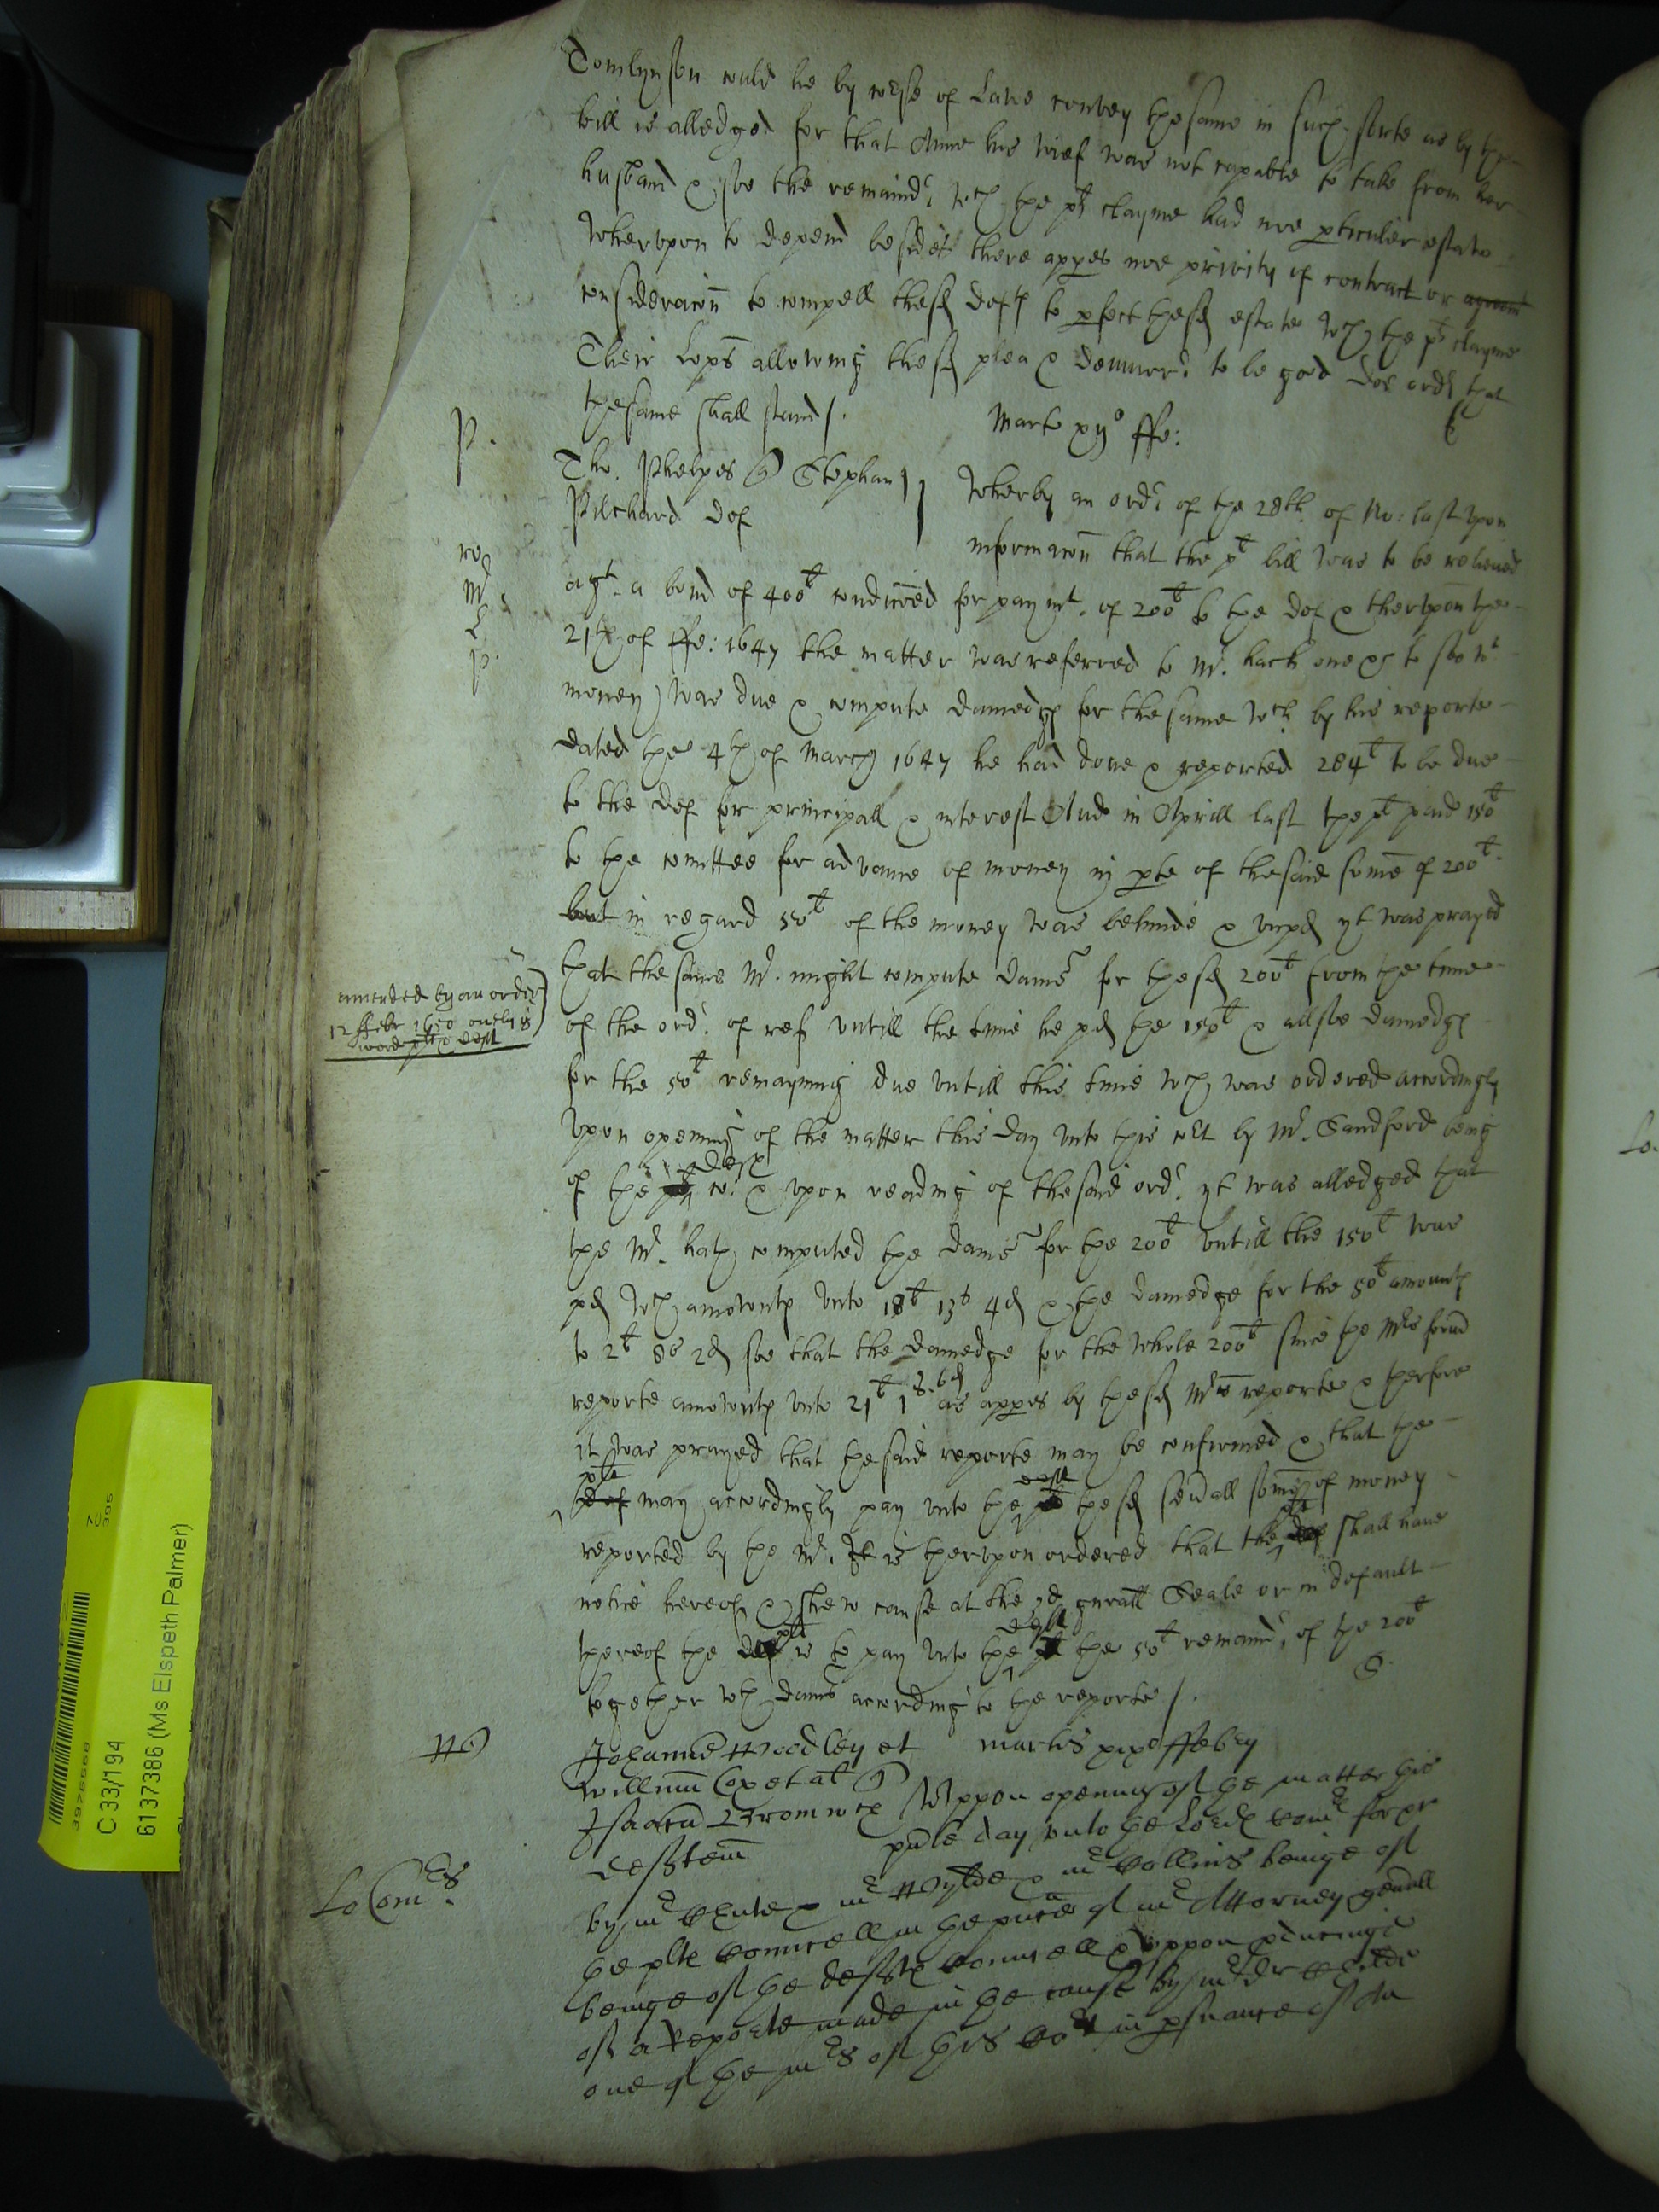 Tomlynson could he by co'se of Lawe convey the same in such sorte as by the
bill is alledged for that Anne his wief was not capable to take from her
husband & soe the remaind'r wch the plt clayme had noe p'ticuler estate
wherupon to depend besides there appes noe privity of contract or agreemt
consideracon to compell the sd deftes to p'fect the sd estate wch the plt clayme
Their Lopps allowing the sd plea & demurr'r to be good doe ord'r that
the same shall stand /.
P.
Marte xijo ffe:
Tho. Phelpes Stephan
Pilchard def
Wherby an ord'r of the 28th. of No: last upon
informacon that the plt bill was to be releived
ro
Mr
L
p.
agt. a bond of 400l condiconed for paymt. of 200l to the def & therupon the
21th of ffe: 1647 the matter was referred to Mr. hach one &c to see wt
money was due & compute damedges for the same wch by his reporte
dated the 4th of March 1647 he had done & reported 284l to be due
to the def for principall & interest And in Aprill last the plt paid 150l
to the comittee for advance of money in p'te of the said some of 200l.
but in regard 50l of the money was behinde & unpd yt was prayed
that the same Mr. might compute dam'es for the sd 200l from the time
amended by an order
12 ffebr 1650 onely is
word plt & deft
of the ord'r. of ref untill the time he pd the 150l & allsoe damedges
for the 50l remayning due untill this time wch was ordered accordingly
Upon opening of the matter this day unto this co't by Mr. Sandford being
deftes
of the plts co: & upon reading of the said ord'r. yt was alledged that
the Mr. hath computed the dam'es for the 200l untill the 150l was
pd wch amounts unto 18l 13s 4d & the damedge for the 50l amounts
to 2l 8s 2d soe that the damedge for the whole 200l since the Mrs form'd
reporte amounts unto 21l 1s. 6d as appes by the sd Mrs reporte & therfore
it was prayed that the said reporte may be confirmed & that the
plt deft
def may accordingly pay unto the plt the sd sev'all somes of money
plt
reported by the Mr. It is therupon ordered that the def shall have
notice hereof & shew cause at the 2d gen'all Seale or in default
plt deft
thereof the def is to pay unto the plt the 50l remaind'r of the 200l
together wth dam'es according to the reporte /.
S.
W
Johannes Woodley et
Willmus Cox et al
Isaacu Bromwch
defftem
martis xixo ffebry
Uppon openinge of the matter this
p'nte day unto the Lordes Com'rs for &c
Lo Com'rs.
by mr Chute & mr Wylde & mr Collins beinge of
the plts Councell in the p'nce of mr Attorney gen'all
beinge of the deftes Councell & uppon p'ducinge
of a Reporte made in the cause by mr dr Childe
one of the mrs of this Co't in p'suance of An